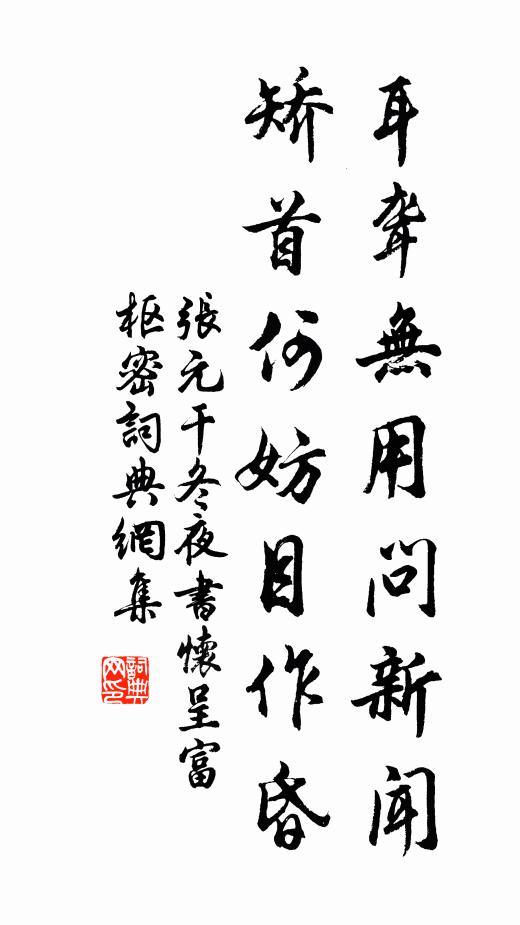 耳聾無用問新聞
矯首何妨目作昏
張元干冬夜書懷呈富
枢密詞典網集
詞典
网印